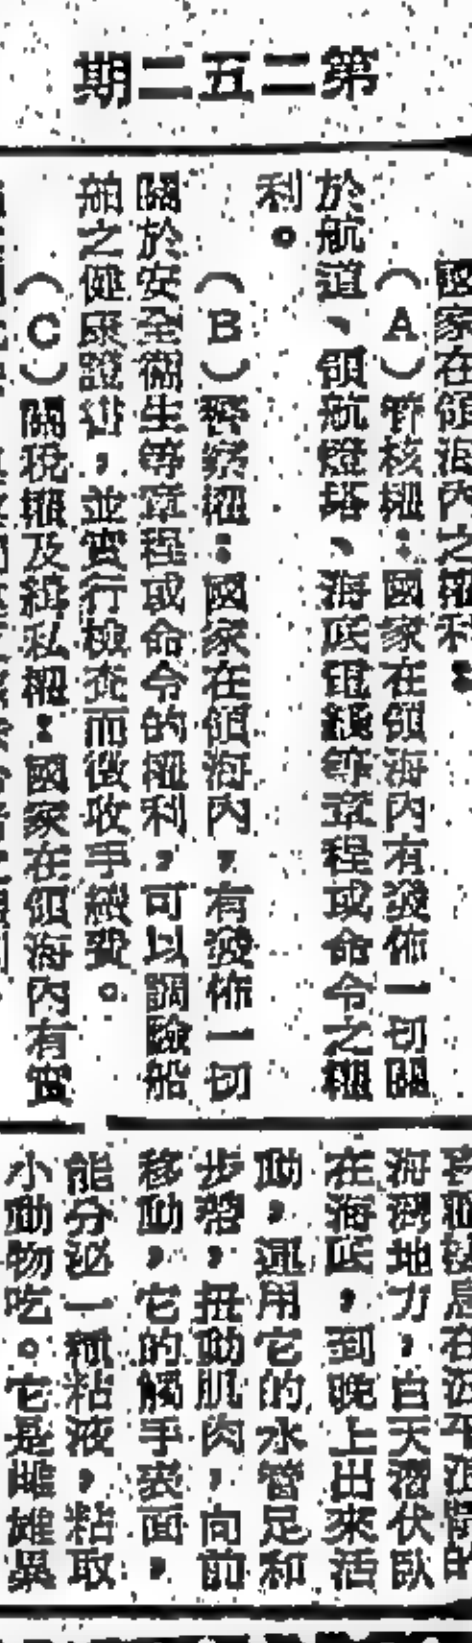 第二五二期
國家在領海內之權利：
（A）管核權：國家在領海內有發佈一切關
於航道、領航燈塔、海底電纜等章程或命令之權
利。
（B）警察權：國家在領海內，有發佈一切
關於安全衛生等章程或命令的權利，可以調驗船
舶之健康證書，並實行檢查而徵收手續費。
（C）關稅權及緝私權：國家在領海內有實
海灣地方，白天潛伏臥
在海底，到晚上出來活
動，運用它的水管足和
步帶，扭動肌肉，向前
移動，它的觸手表面，
能分泌一種粘液，粘取
小動物吃。它是雌雄異